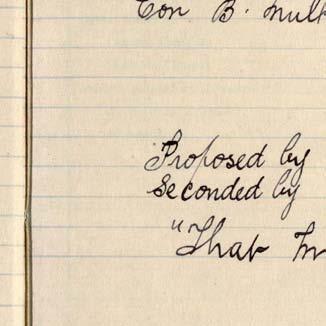 Con B.
Proposed by
Seconded by
"That